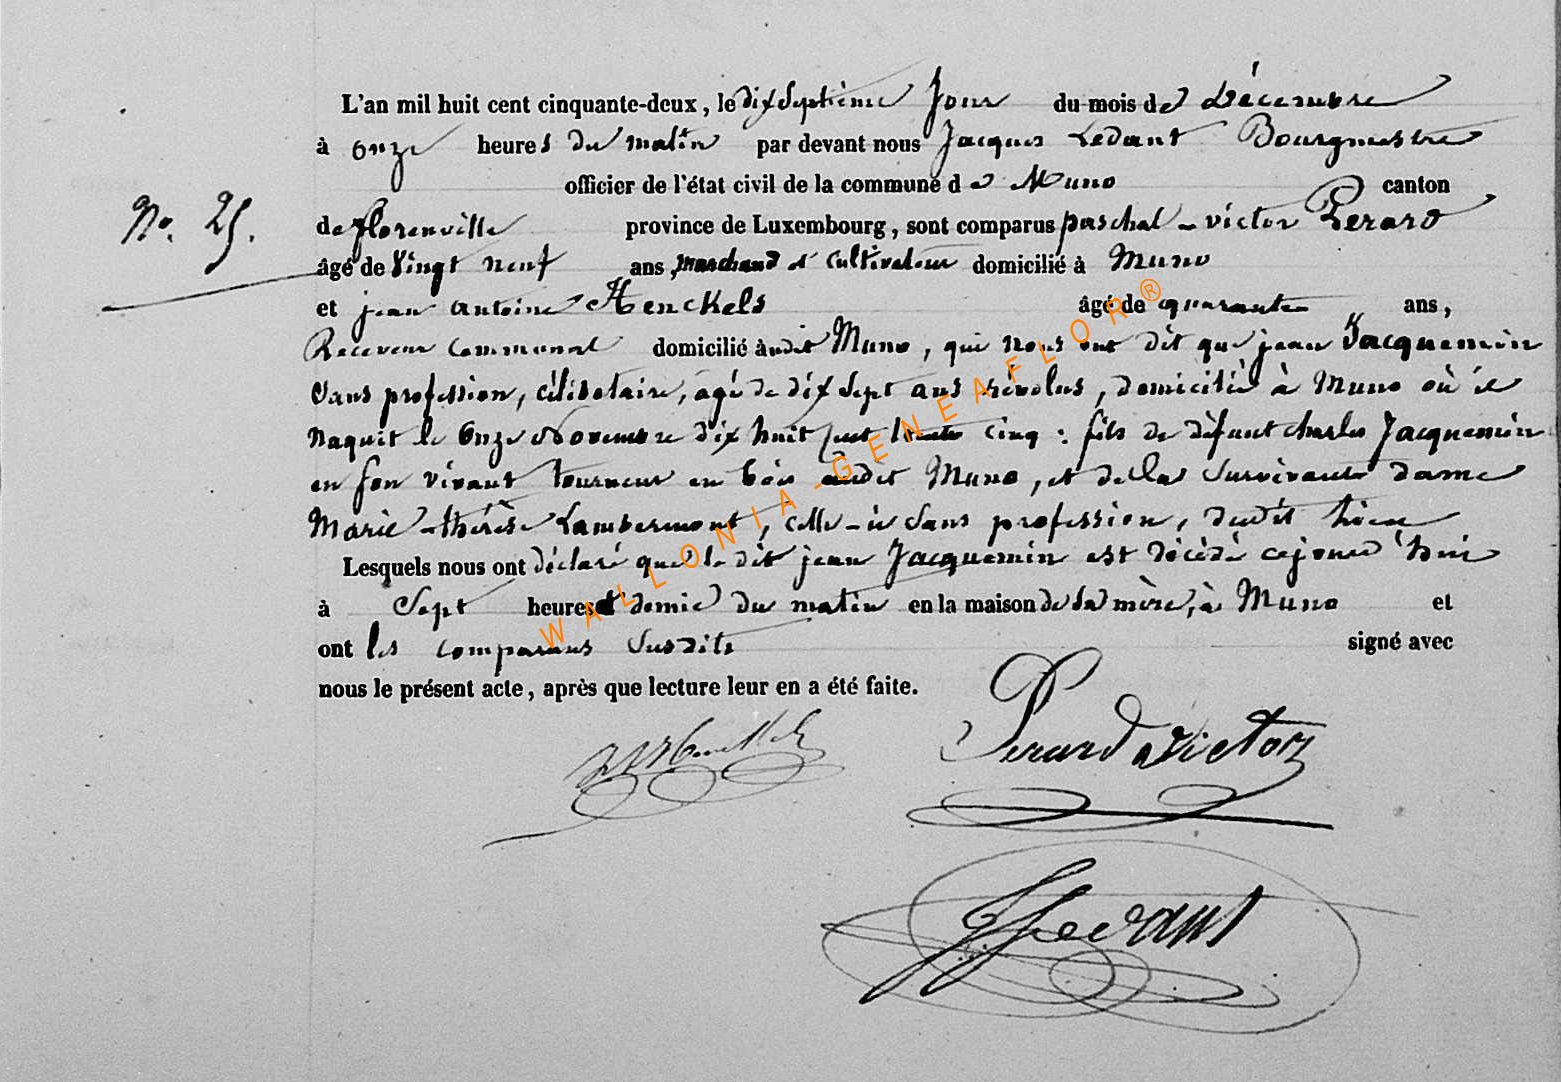 L'an mil huit cent cinquante-deux, le dix Septième Jour du mois de Décembre
à onze heures du matin par devant nous Jacques Ledant Bourgmestre
officier de l'état civil de la commune de Muno canton
No. 25.
de florenville province de Luxembourg, sont comparus paschal-victor Perard
âgé de Vingt neuf ans, marchand et cultivateur domicilié à Muno
et jean antoine Henckels âgé de quarante ans,
Receveur Communal domicilié àudit Muno, qui nous ont dit que jean Jacquemin
Sans profession, célibataire, agé de dix Sept ans révolus, domicilié à Muno où il
naquit le Onze Novembre dix huit cent trente cinq : fils de défunt charles Jacquemin
en son vivant tourneur en bois audit Muno, et de la Survivante dame
Marie-thérèse Lambermont, celle-ci Sans profession, dudit lieu
Lesquels nous ont déclaré que le dit jean Jacquemin est décédé cejourd'hui
à Sept heures et demie du matin en la maison de Sa mère, à Muno et
ont les comparans Susdits signé avec
nous le présent acte, après que lecture leur en a été faite.
Perard Victor
JLedant
WALLONIA-GENEAFLOR®